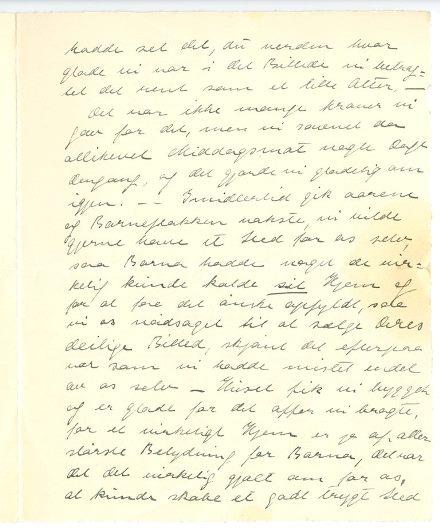 hadde set det, du verden hvor
glade vi var i det Billede vi betrag=
tet det rent som et lille Alter. —
Det var ikke mange kroner vi
gav for det, men vi savnet da
allikevel Middagsmat nogle Dage
Omgang, og det gjorde vi gladelig om
igjen. — — Imidlertid gik aarene
og Barneflokken vokste, vi vilde
gjerne have et Sted for os selv,
saa Barna hadde noget de vir-
kelig kunde kalde sit Hjem og
for at faae det ønske opfyldt, saa
vi os nødsaget til at sælge Deres
deilige Billed, skjønt det efterpaa
var som vi hadde mistet en del
av os selv — Huset fik vi bygget
og er glade for det offer vi bragte,
for et virkeligt Hjem er jo af aller
største Betydning for Barna, det var
det det virkelig gjalt om for os,
at kunde skabe et godt trygt Sted